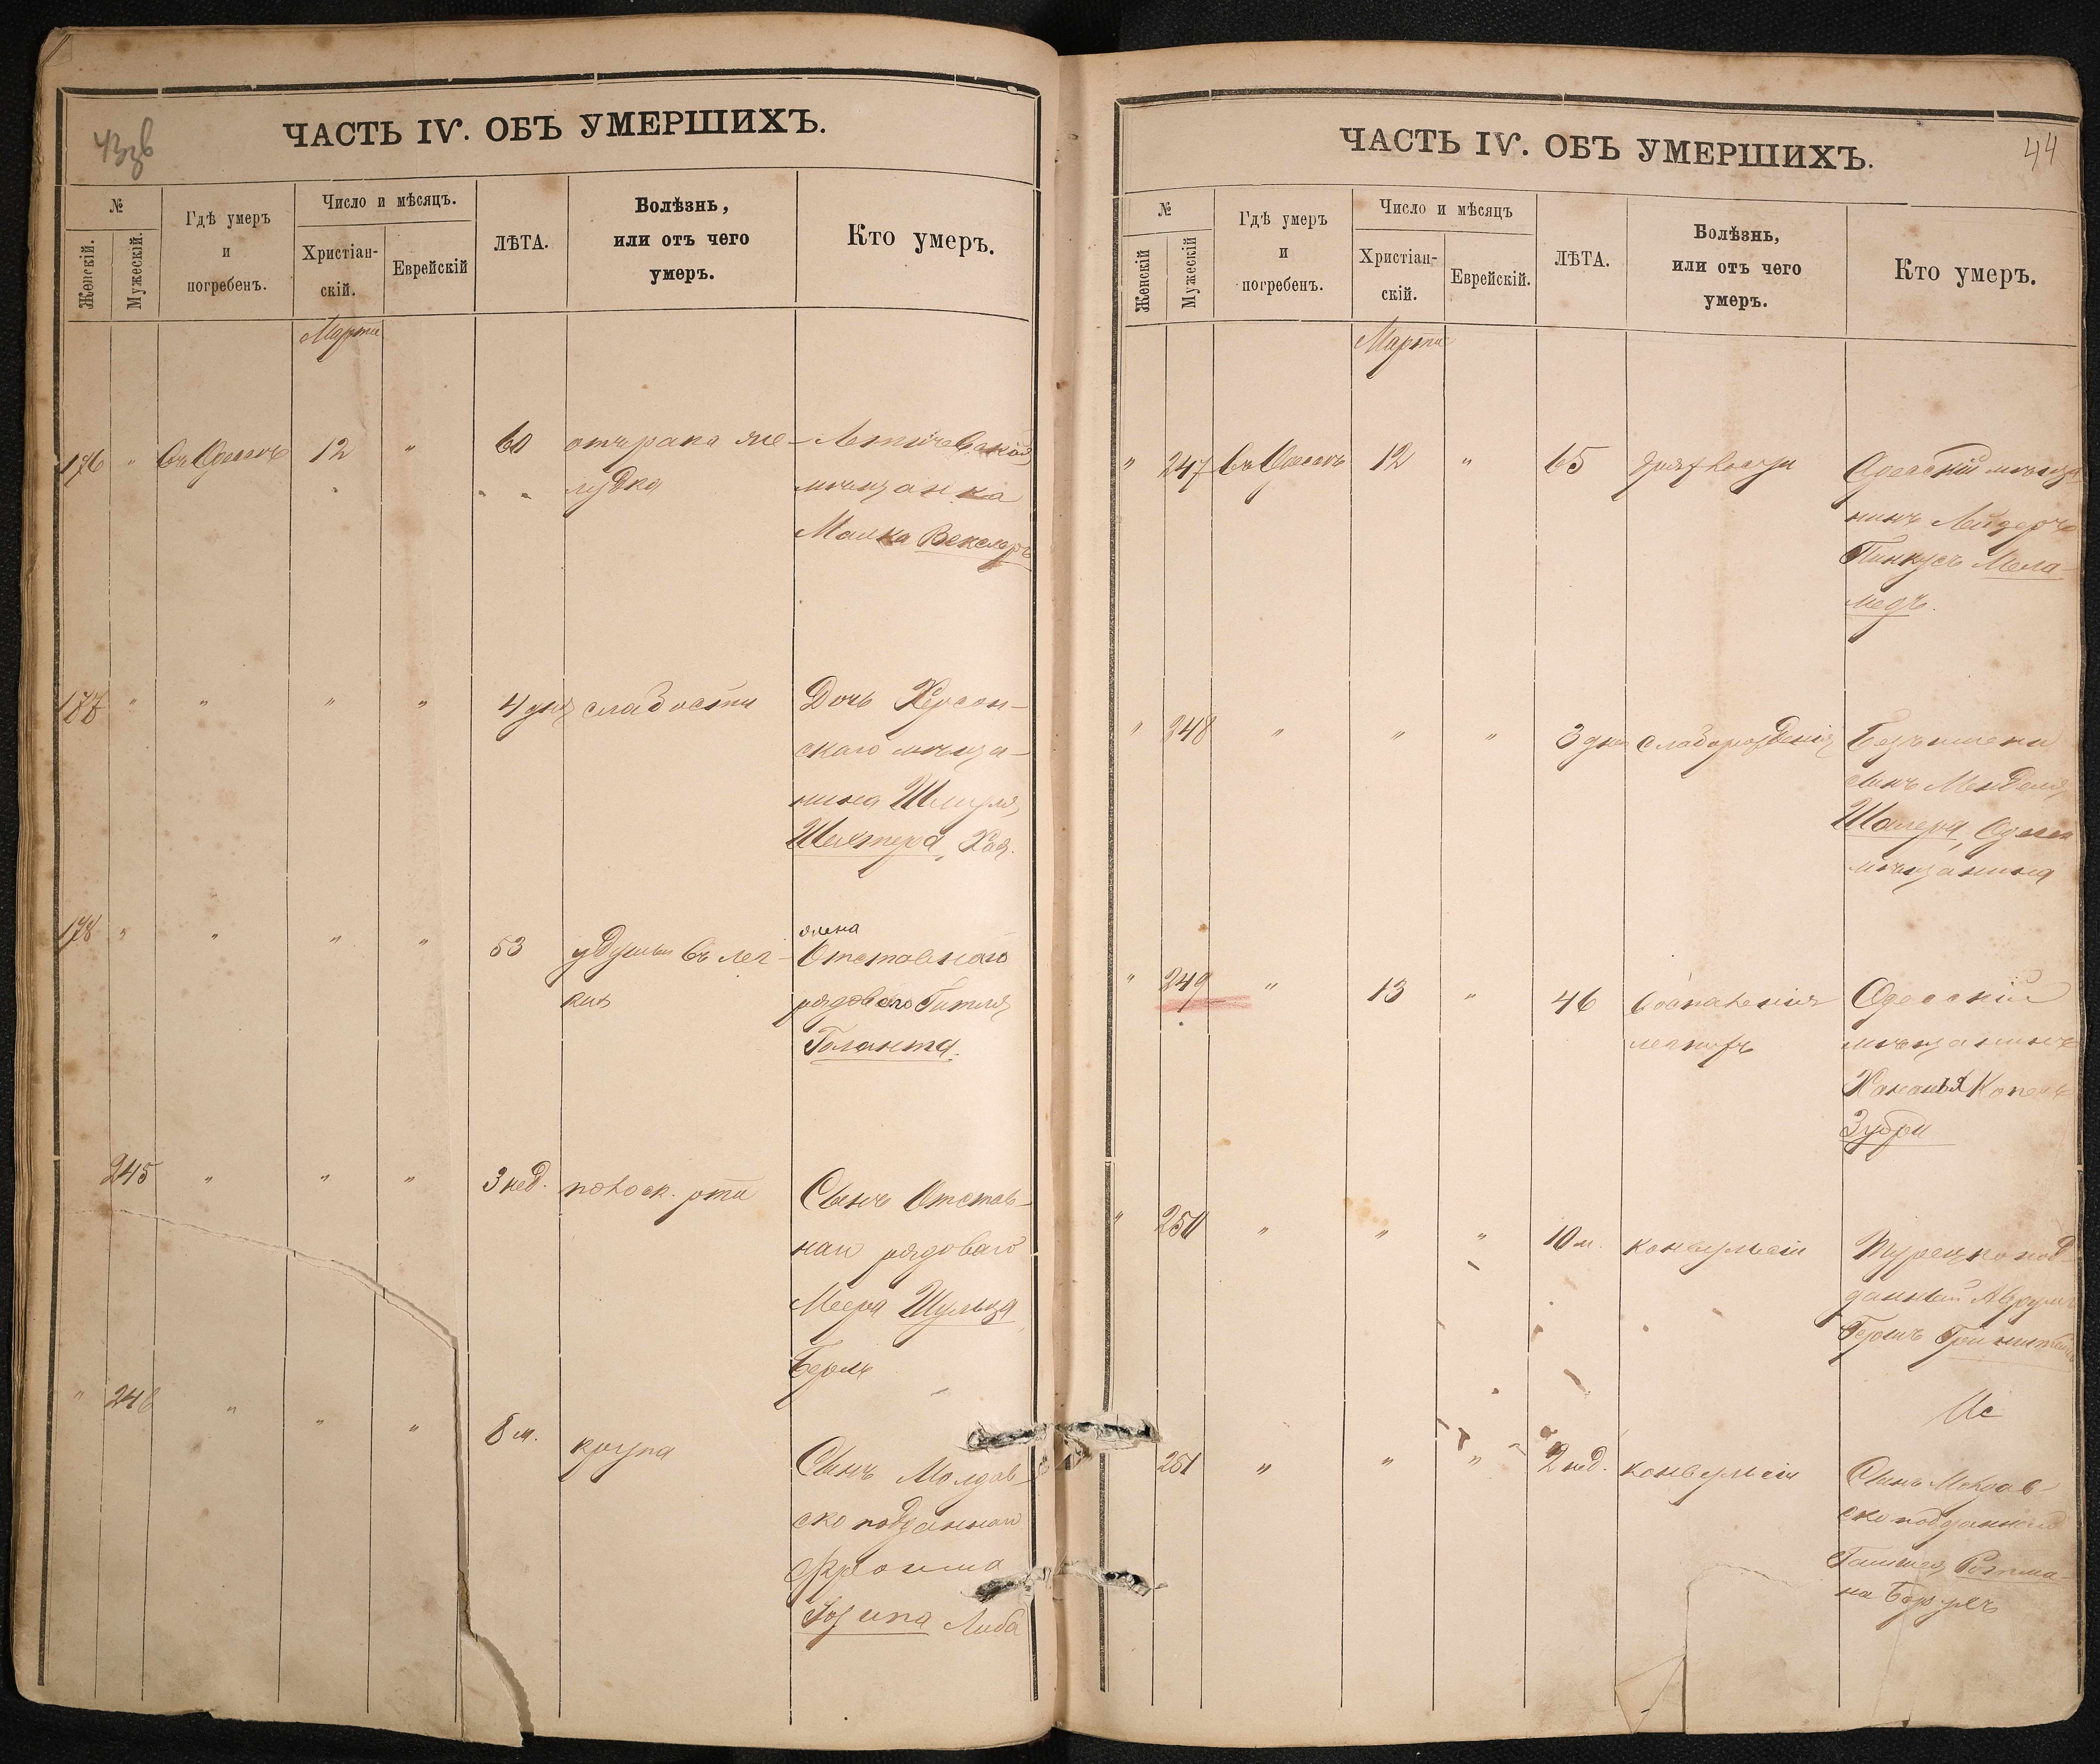 43 зв
ЧАСТЬ IV. ОБЪ УМЕРШИХЪ.
№
Женскій.
Мужескій.
Гдѣ умеръ
и
погребенъ.
Число и мѣсяцъ.
Христіан-
скій.
Еврейскій
ЛѢТА.
Болѣзнь,
или отъ чего
умеръ.
Кто умеръ.
Марта
176 " въ Одессѣ 12 " 60 отъ рака же-
лудка
Летичевская
мѣщанка
Малка Векслеръ
177 " " " " 4 дня слабости
Дочь Херсон-
скаго мѣща-
нина Шмуля
Шехтера, Хая.
178 " " " " 53 удушья въ лег-
кихъ
жена
Отставнаго
рядоваго Гитля
Галанта.
245 " " " 3 нед.
Сынъ Отстав-
наго рядоваго
Меера Шульца
Берль
" 246 " " " 8 м. крупа
Сынъ Молдав-
ско подданнаго
Фроима
Лейба
44
ЧАСТЬ IV. ОБЪ УМЕРШИХЪ.
№
Женскій
Мужескій
Гдѣ умеръ
и
погребенъ.
Число и мѣсяцъ
Христіан-
скій.
Еврейскій.
ЛѢТА.
Болѣзнь,
или отъ чего
умеръ.
Кто умеръ.
Марта
" 247 въ Одессѣ 12 " 65
Одесскій мѣща
нинъ Лейзеръ
Пинкусъ Мела-
медъ.
" 248 " " " 3 дня слаборожденія
Безъимени
сынъ Менделя
Шалера, Одесск
мѣщанина
" 249 " 13 " 46 воспаленія
легкихъ
Одесскій
мѣщанинъ
Хананья Копель
Зубри
" 250 " " " 10 м. конвульсіи
Турецко под-
данный Аврумъ
Гершъ
251 " " " 2 нед. конвульсіи
Сынъ Молдав-
ско подданнаго
Ройтма-
на Борухъ